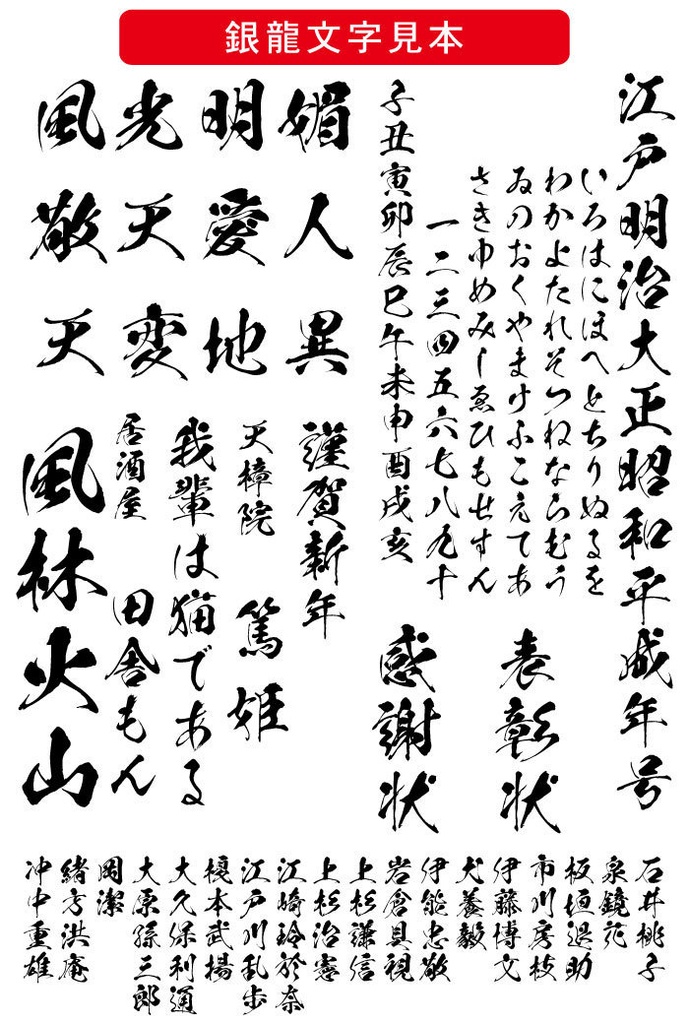 銀龍文字見本
江戸明治大正昭和平成年号
いろはにほへとちりぬるを
わかよたれそつねならむう
ゐのおくやまけふこえてあ
さきゆめみしゑひもせすん
一二三四五六七八九十
子丑寅卯辰巳午未申酉戌亥
表彰状
感謝状
風光明媚
敬天愛人
天変地異
謹賀新年
天樟院 篤姫
我輩は猫である
居酒屋 田舎もん
風林火山
石井桃子
泉鏡花
板垣退助
市川房枝
伊藤博文
犬養毅
伊能忠敬
岩倉具視
上杉謙信
上杉治憲
江崎玲於奈
江戸川乱歩
榎本武揚
大久保利通
大原孫三郎
岡潔
緒方洪庵
冲中重雄